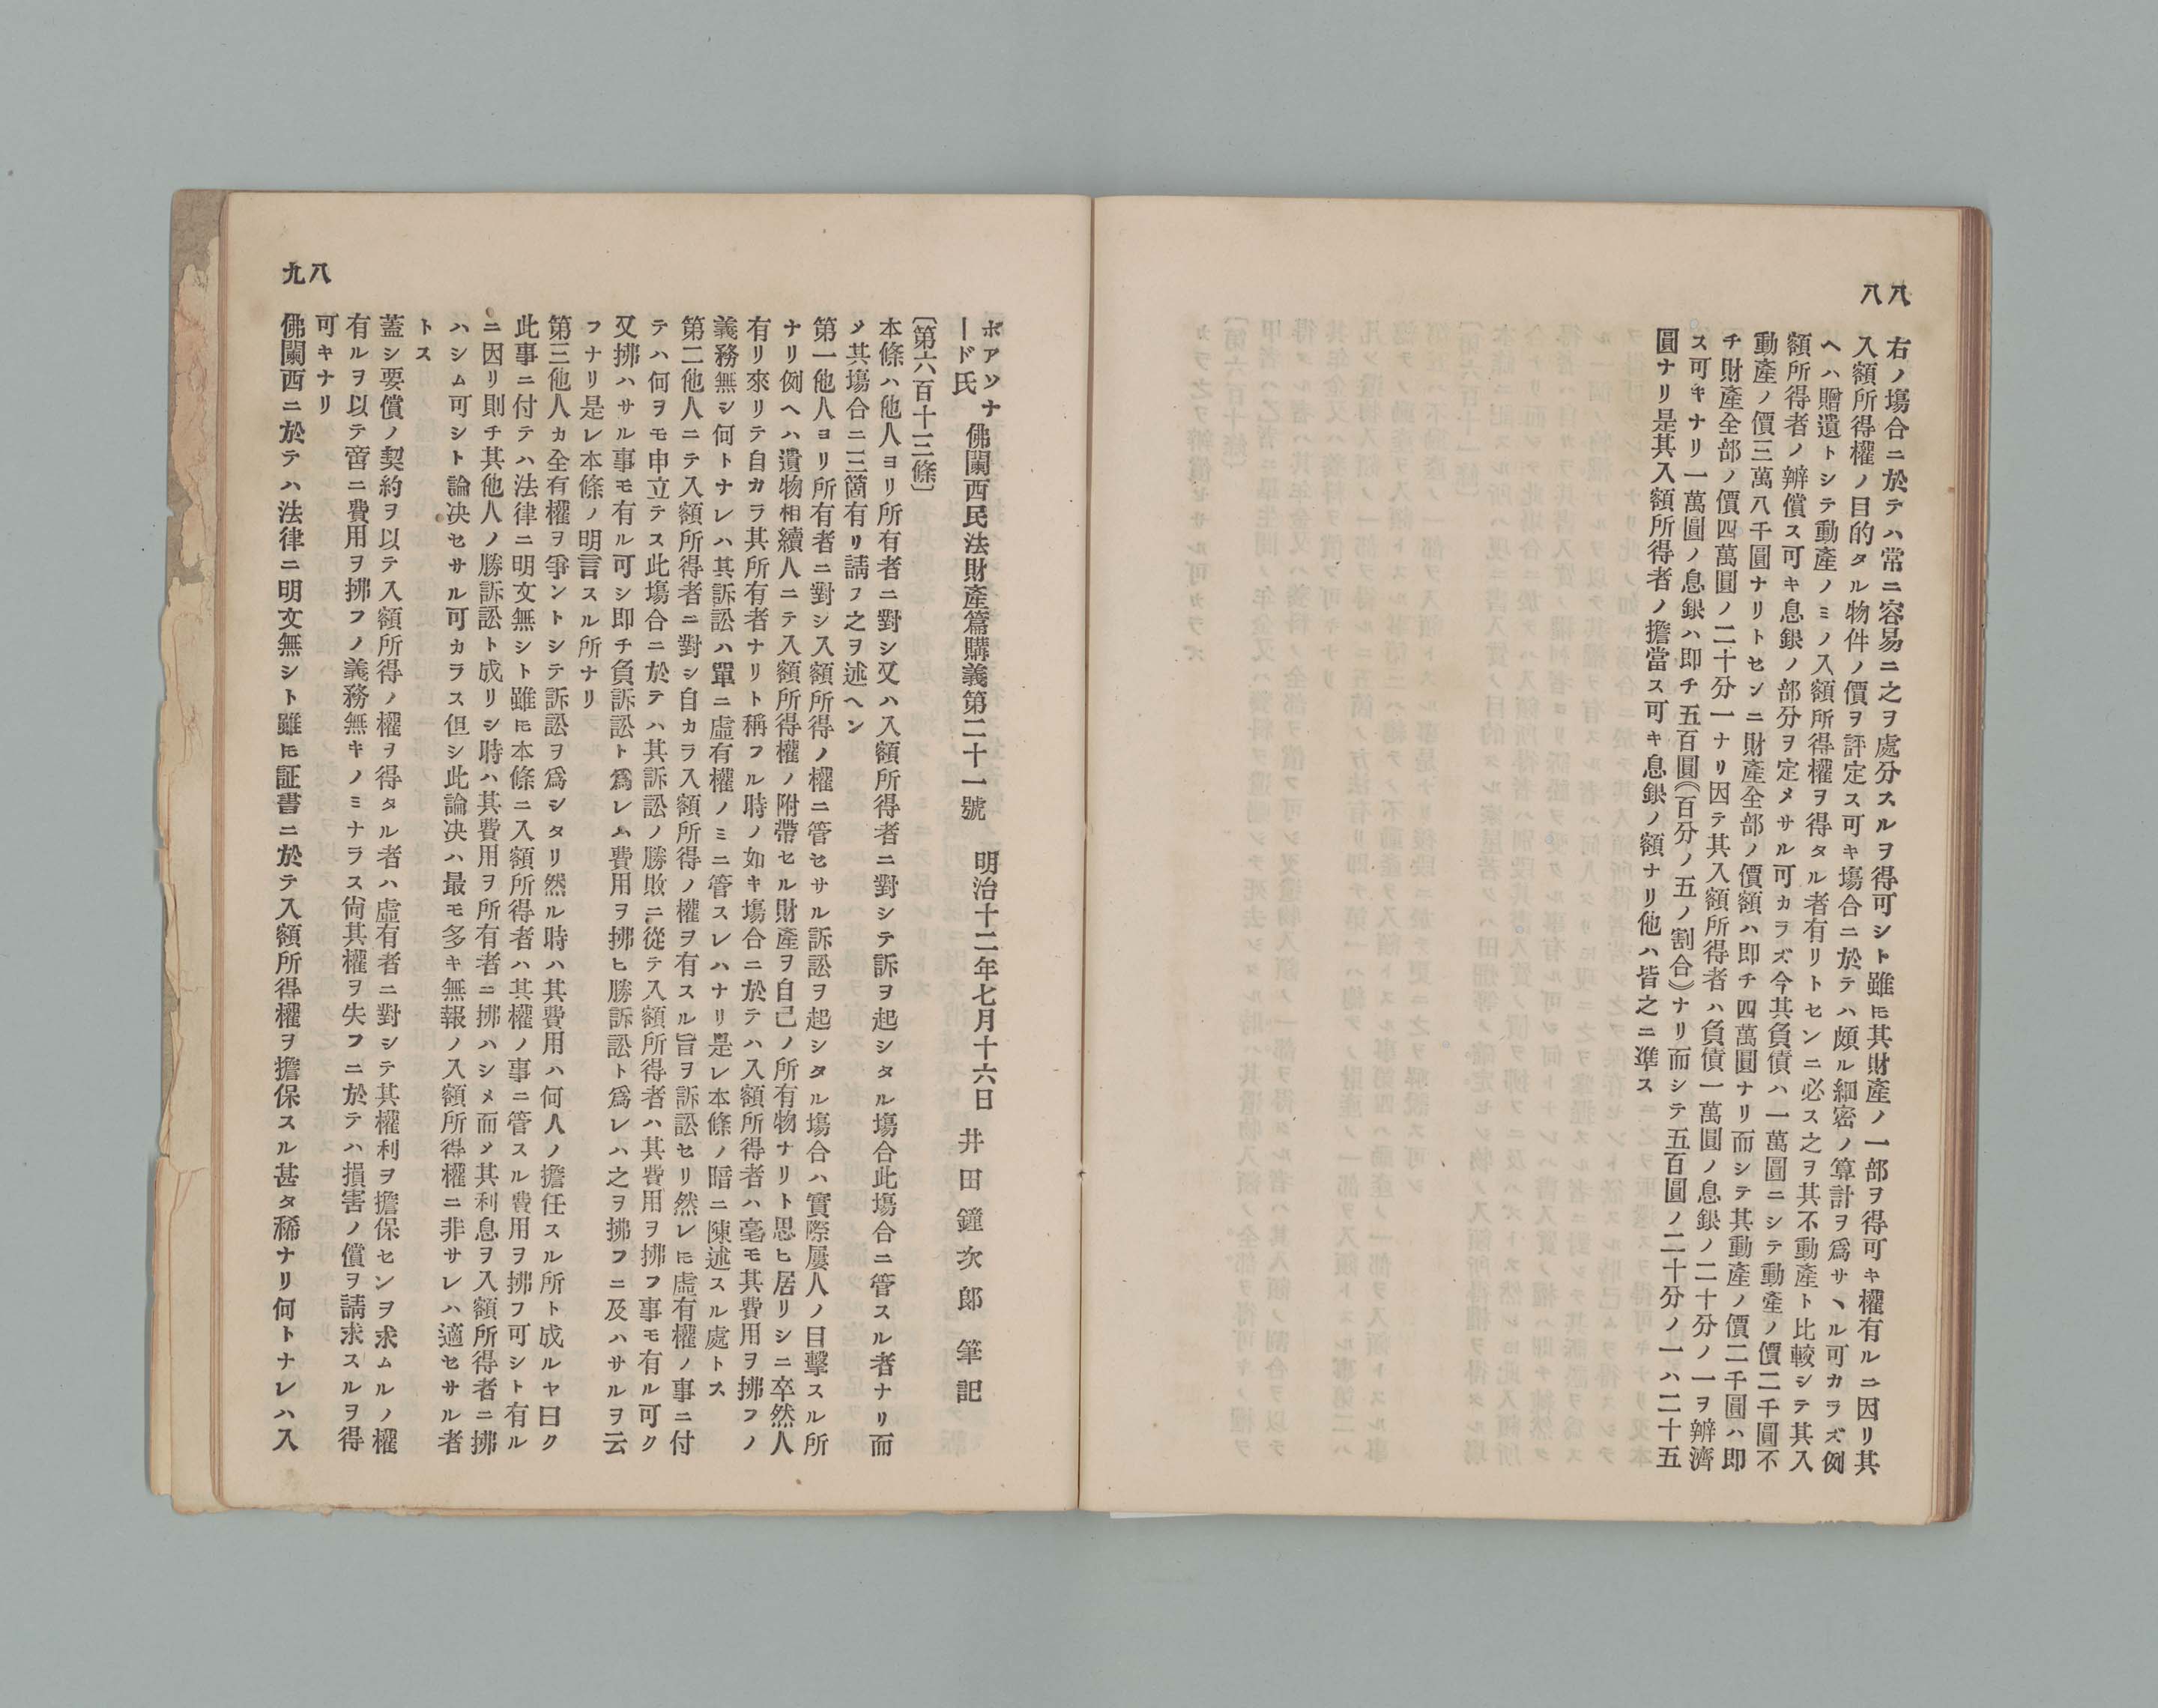 八八
右ノ塲合ニ於テハ常ニ容易ニ之ヲ處分スルヲ得可シト雖𪜈其財產ノ一部ヲ得可キ權有ルニ因リ其
入額所得權ノ目的タル物件ノ價ヲ評定ス可キ塲合ニ於テハ頗ル細密ノ算計ヲ爲サヽル可カラズ例
ヘハ贈遺トシテ動產ノミノ入額所得權ヲ得タル者有リトセンニ必ス之ヲ其不動產ト比較シテ其入
額所得者ノ辨償ス可キ息銀ノ部分ヲ定メサル可カラズ今其負債ハ一萬圓ニシテ動產ノ價二千圓不
動產ノ價三萬八千圓ナリトセンニ財產全部ノ價額ハ即チ四萬圓ナリ而シテ其動產ノ價二千圓ハ即
チ財產全部ノ價四萬圓ノ二十分一ナリ因テ其入額所得者ハ負債一萬圓ノ息銀ノ二十分ノ一ヲ辨濟
ス可キナリ一萬圓ノ息銀ハ即チ五百圓(百分ノ五ノ割合)ナリ而シテ五百圓ノ二十分ノ一ハ二十五
圓ナリ是其入額所得者ノ擔當ス可キ息銀ノ額ナリ他ハ皆之ニ準ス
八九
ボアソナード氏 佛蘭西民法財產篇購義第二十一號 明治十二年七月十六日 井田鐘次郎 筆記
〔第六百十三條〕
本條ハ他人ヨリ所有者ニ對シ又ハ入額所得者ニ對シテ訴ヲ起シタル塲合此塲合ニ管スル者ナリ而
メ其塲合ニ三箇有リ請フ之ヲ述ヘン
第一他人ヨリ所有者ニ對シ入額所得ノ權ニ管セサル訴訟ヲ起シタル塲合ハ實際屢人ノ目擊スル所
ナリ例ヘハ遺物相續人ニテ入額所得權ノ附帶セル財產ヲ自己ノ所有物ナリト思ヒ居リシニ卒然人
有リ來リテ自カラ其所有者ナリト稱フル時ノ如キ塲合ニ於テハ入額所得者ハ毫モ其費用ヲ拂フノ
義務無シ何トナレハ其訴訟ハ單ニ虛有權ノミニ管スレハナリ是レ本條ノ暗ニ陳述スル處トス
第二他人ニテ入額所得者ニ對シ自カラ入額所得ノ權ヲ有スル旨ヲ訴訟セリ然レ𪜈虛有權ノ事ニ付
テハ何ヲモ申立テス此塲合ニ於テハ其訴訟ノ勝敗ニ從テ入額所得者ハ其費用ヲ拂フ事モ有ル可ク
又拂ハサル事モ有ル可シ即チ負訴訟ト爲レハ費用ヲ拂ヒ勝訴訟ト爲レハ之ヲ拂フニ及ハサルヲ云
フナリ是レ本條ノ明言スル所ナリ
第三他人カ全有權ヲ爭ントシテ訴訟ヲ爲シタリ然ル時ハ其費用ハ何人ノ擔任スル所ト成ルヤ曰ク
此事ニ付テハ法律ニ明文無シト雖𪜈本條ニ入額所得者ハ其權ノ事ニ管スル費用ヲ拂フ可シト有ル
ニ因リ則チ其他人ノ勝訴訟ト成リシ時ハ其費用ヲ所有者ニ拂ハシメ而メ其利息ヲ入額所得者ニ拂
ハシム可シト論决セサル可カラス但シ此論决ハ最モ多キ無報ノ入額所得權ニ非サレハ適セサル者
トス
蓋シ要償ノ契約ヲ以テ入額所得ノ權ヲ得タル者ハ虛有者ニ對シテ其權利ヲ擔保センヲ求ムルノ權
有ルヲ以テ啻ニ費用ヲ拂フノ義務無キノミナラス尙其權ヲ失フニ於テハ損害ノ償ヲ請求スルヲ得
可キナリ
佛蘭西ニ於テハ法律ニ明文無シト雖𪜈証書ニ於テ入額所得權ヲ擔保スル甚タ稀ナリ何トナレハ入